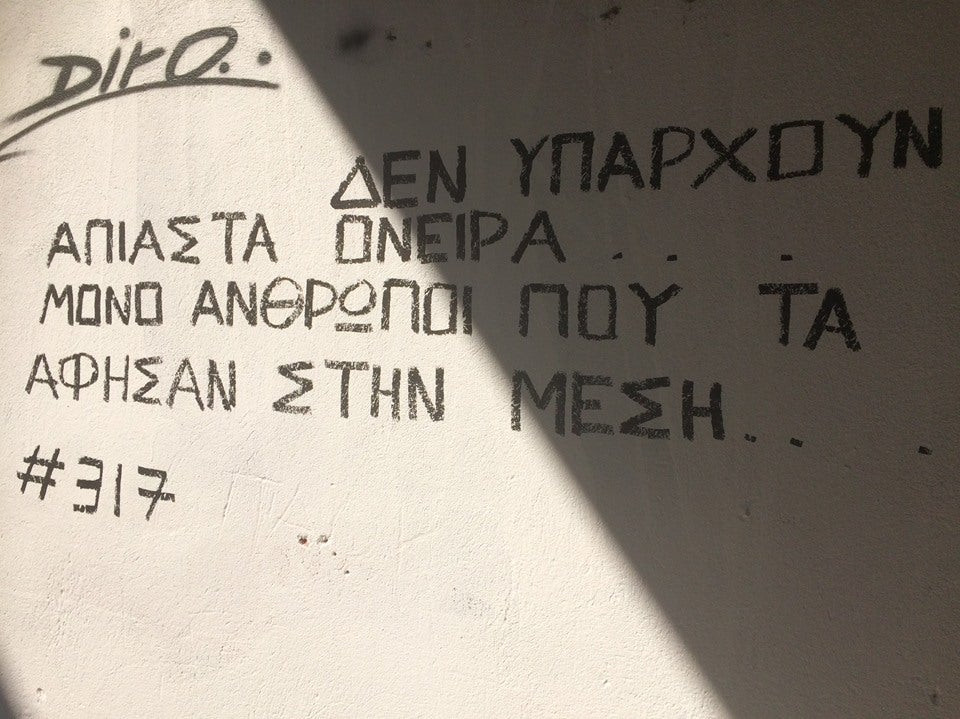 Diro..
ΔΕΝ ΥΠΑΡΧΟΥΝ
ΑΠΙΑΣΤΑ ΟΝΕΙΡΑ . . .
ΜΟΝΟ ΑΝΘΡΩΠΟΙ ΠΟΥ ΤΑ
ΑΦΗΣΑΝ ΣΤΗΝ ΜΕΣΗ . . .
#317